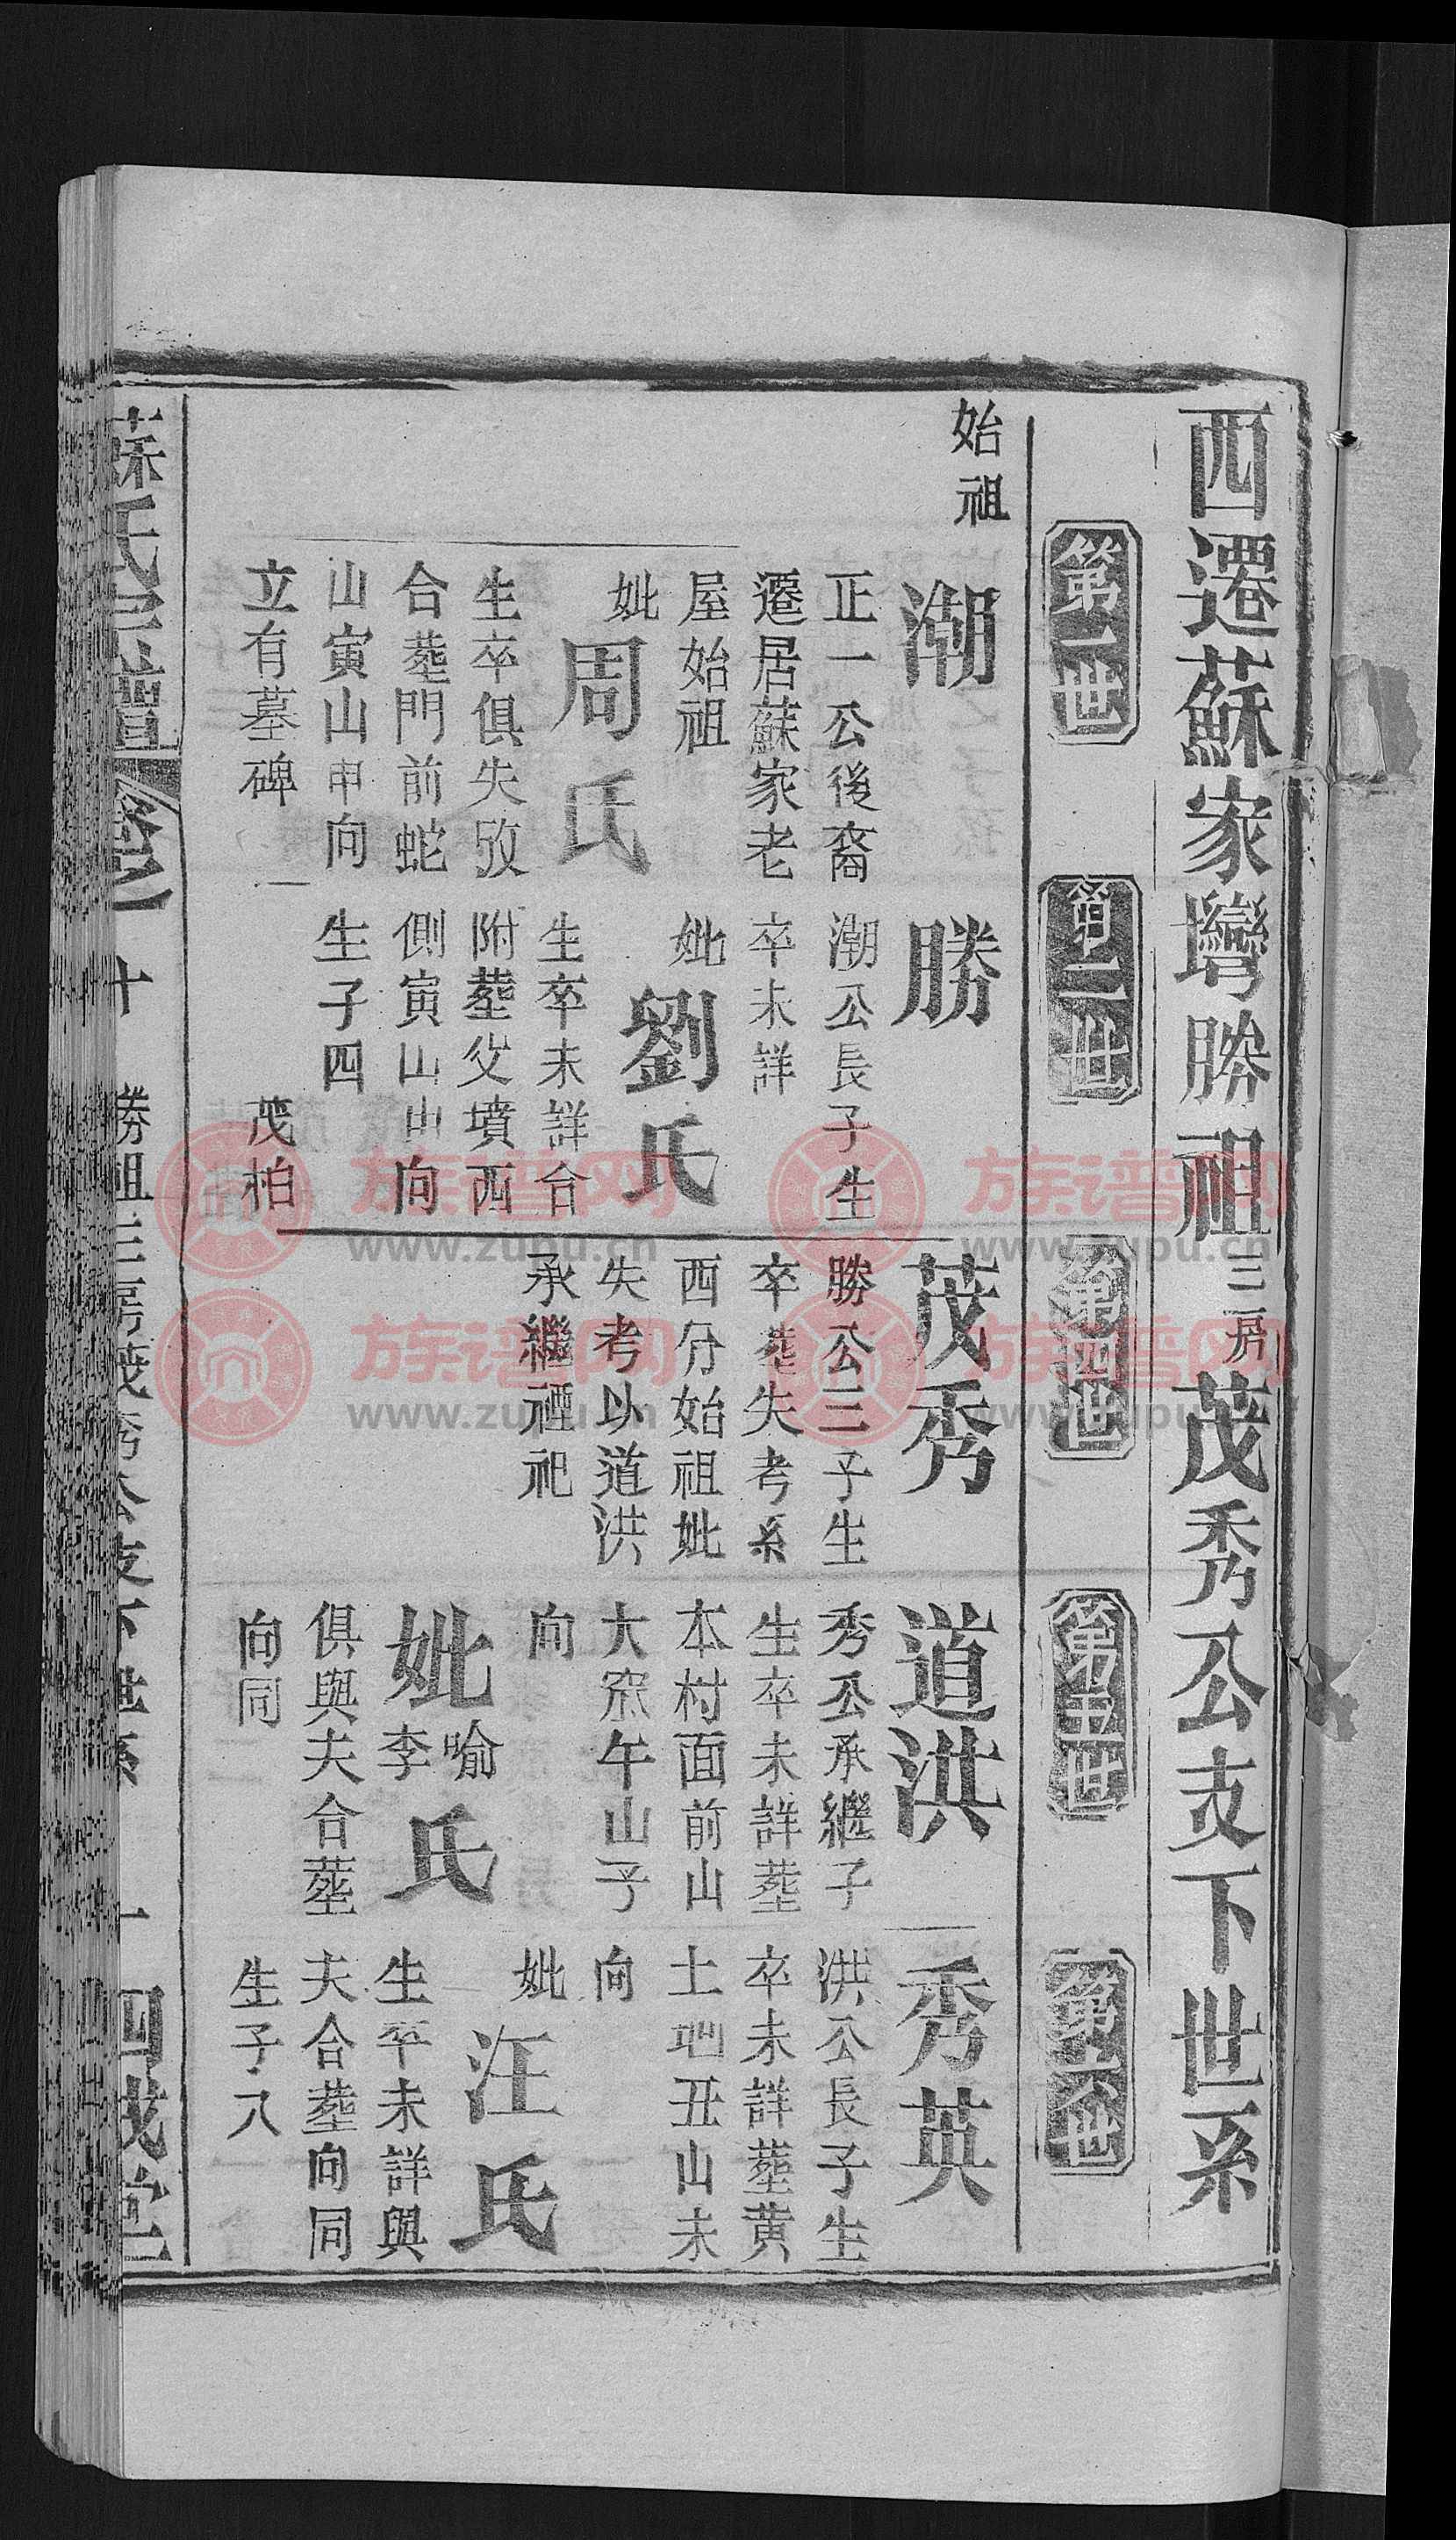 西遷蘇家塆勝祖三房茂秀公支下世系
第一世
第二世
第四世
第五世
第六世
始祖
潮
正一公後裔
遷居蘇家老
屋始祖
妣
周氏
生卒俱失攷
合塟門前蛇
山寅山申向
立有墓碑
勝
潮公長子生
卒未詳
妣
劉氏
生卒未詳合
附塟父墳西
側寅山申向
生子四
茂柏
茂秀
勝公三子生
卒塟失考系
西分始祖妣
失考以道洪
承繼禋祀
道洪
秀公承繼子
生卒未詳塟
本村面前山
大窊午山子
向
妣
喻
李
氏
俱與夫合塟
向同
秀英
洪公長子生
卒未詳塟黄
土地丑山未
向
妣
汪氏
生卒未詳與
夫合塟向同
生子八
蘇氏宗譜
卷十
勝祖三房茂秀公支下世系
一
四成堂
族谱网
www.zupu.cn
族谱网
www.zupu.cn
族谱网
www.zupu.cn
族谱网
www.zupu.cn